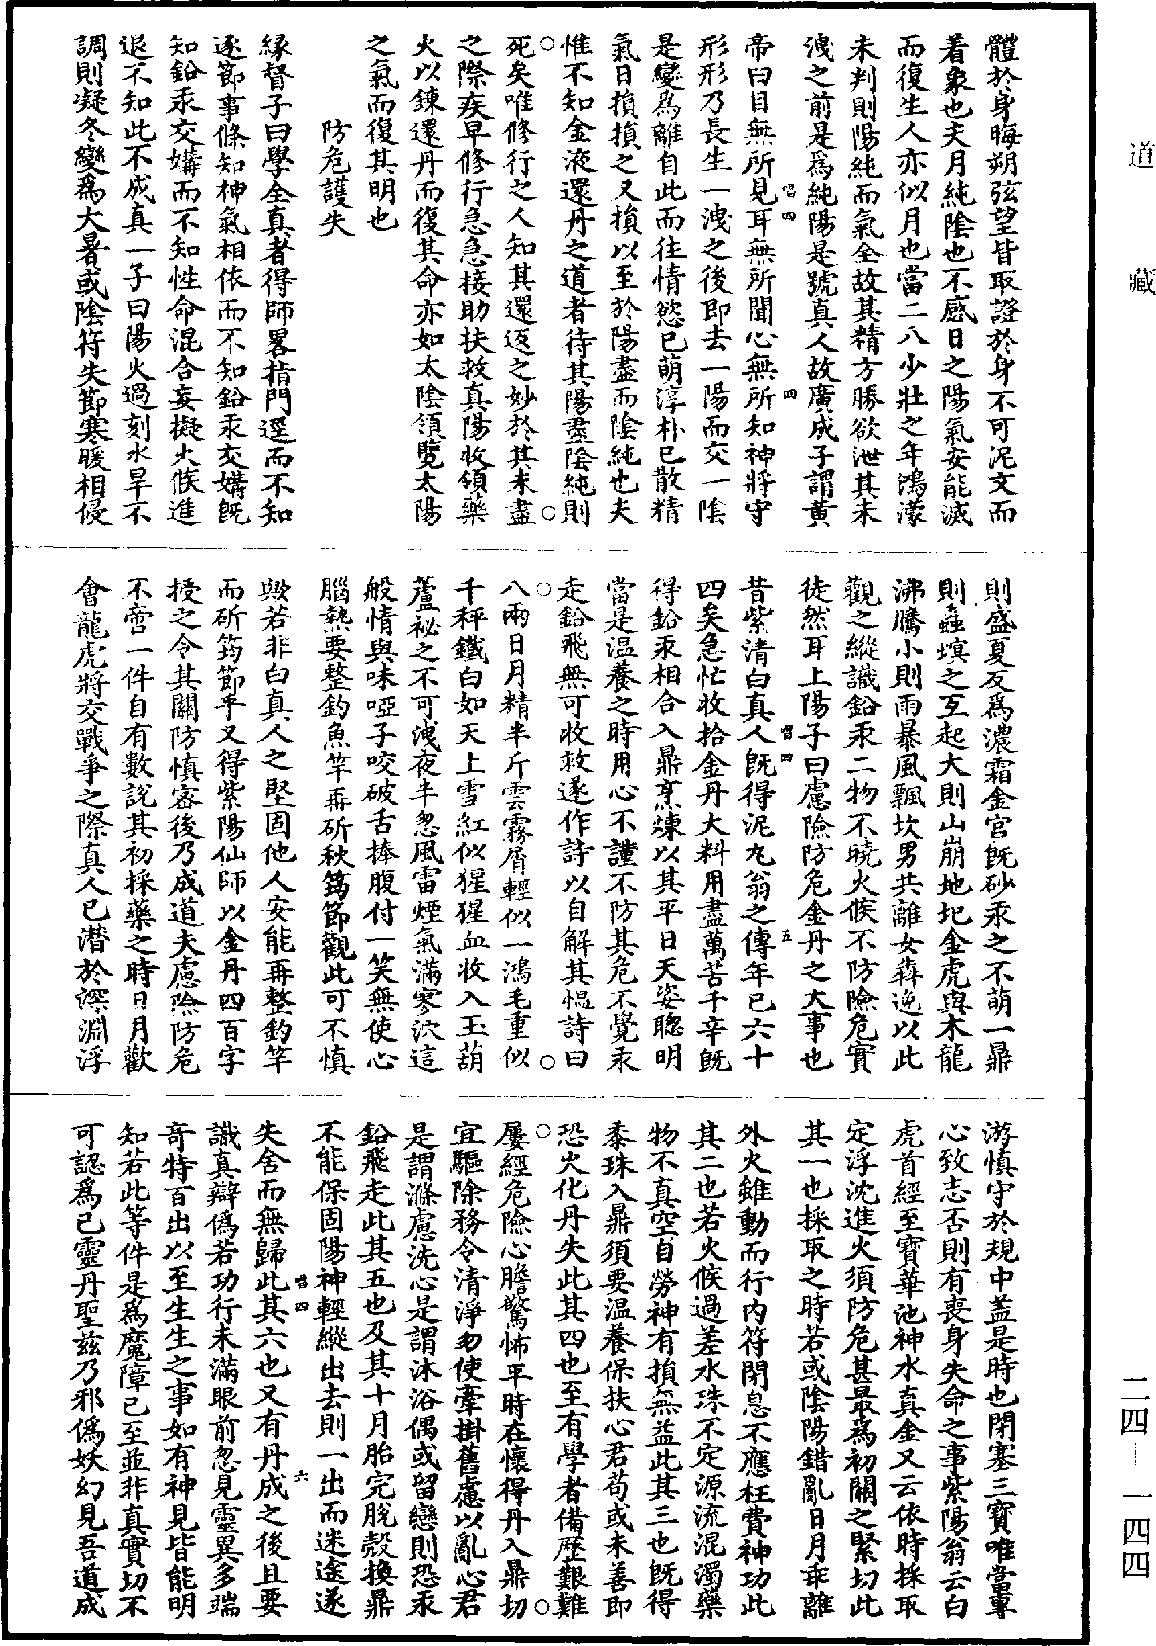 道藏
體於身晦朔弦望皆取證於身不可泥文而
着象也夫月純陰也不感日之陽氣安能滅
而復生人亦似月也當二八少壯之年鴻濛
未判則陽純而氣全故其精方勝欲泄其未
洩之前是為純陽是號真人故廣成子謂黃
帝曰目無所見耳無所聞心無所知神將守
形形乃長生一洩之後即去一陽而交一陰
是變為離自此而往情慾已萌淳朴已散精
氣日損損之又損以至於陽盡而陰純也夫
惟不知金液還丹之道者待其陽盡陰純則
死矣唯修行之人知其還返之妙於其未盡
之際疾早修行急急接助扶救真陽收領藥
火以鍊還丹而復其命亦如太陰領覽太陽
之氣而復其明也
防危護失
緣督子曰學全真者得師畧指門逕而不知
逐節事條知神氣相依而不知鉛汞交媾既
知鉛汞交媾而不知性命混合妄擬火候進
退不知此不成真一子曰陽火過刻水旱不
調則凝冬變為大暑或陰符失節寒暖相侵
則盛夏反為濃霜金宮既砂汞之不萌一鼎
則蟲螟之互起大則山崩地圮金虎與木龍
沸騰小則雨暴風飄坎男共離女犇逸以此
觀之縱識鉛汞二物不曉火候不防險危實
徒然耳上陽子曰慮險防危金丹之大事也
昔紫清白真人既得泥丸翁之傳年已六十
四矣急忙收拾金丹大料用盡萬苦千辛既
得鉛汞相合入鼎烹煉以其平日天姿聰明
當是溫養之時用心不謹不防其危不覺汞
走鉛飛無可收救遂作詩以自解其愠詩曰
八兩日月精半斤雲霧屑輕似一鴻毛重似
千秤鐵白如天上雪紅似猩猩血收入玉葫
蘆祕之不可洩夜半忽風雷煙氣滿寥泬這
般情與味啞子咬破舌捧腹付一笑無使心
腦熱要整釣魚竿再斫秋筠節觀此可不慎
歟若非白真人之堅固他人安能再整釣竿
而斫筠節乎又得紫陽仙師以金丹四百字
授之令其關防慎密後乃成道夫慮險防危
不啻一件自有數說其初採藥之時日月歡
會龍虎將交戰爭之際真人已潛於深淵浮
游慎守於規中盖是時也閉塞三寶唯當專
心致志否則有喪身失命之事紫陽翁云白
虎首經至寶華池神水真金又云依時採取
定浮沈進火須防危甚最為初關之緊切此
其一也採取之時若或陰陽錯亂日月乖離
外火雖動而行內符閉息不應枉費神功此
其二也若火候過差水珠不定源流混濁藥
物不真空自勞神有損無益此其三也既得
黍珠入鼎須要溫養保扶心君苟或未善即
恐火化丹失此其四也至有學者備歷艱難
屢經危險心膽驚怖平時在懷得丹入鼎切
宜驅除務令清淨勿使牽掛舊慮以亂心君
是謂滌慮洗心是謂沐浴偶或留戀則恐汞
鉛飛走此其五也及其十月胎完脫殼換鼎
不能保固陽神輕縱出去則一出而迷途遂
失舍而無歸此其六也又有丹成之後且要
識真辯偽若功行未滿眼前忽見靈異多端
奇特百出以至生生之事如有神見皆能明
知若此等件是為魔障已至並非真實切不
可認為已靈丹聖兹乃邪偽妖幻見吾道成
二四—一四四